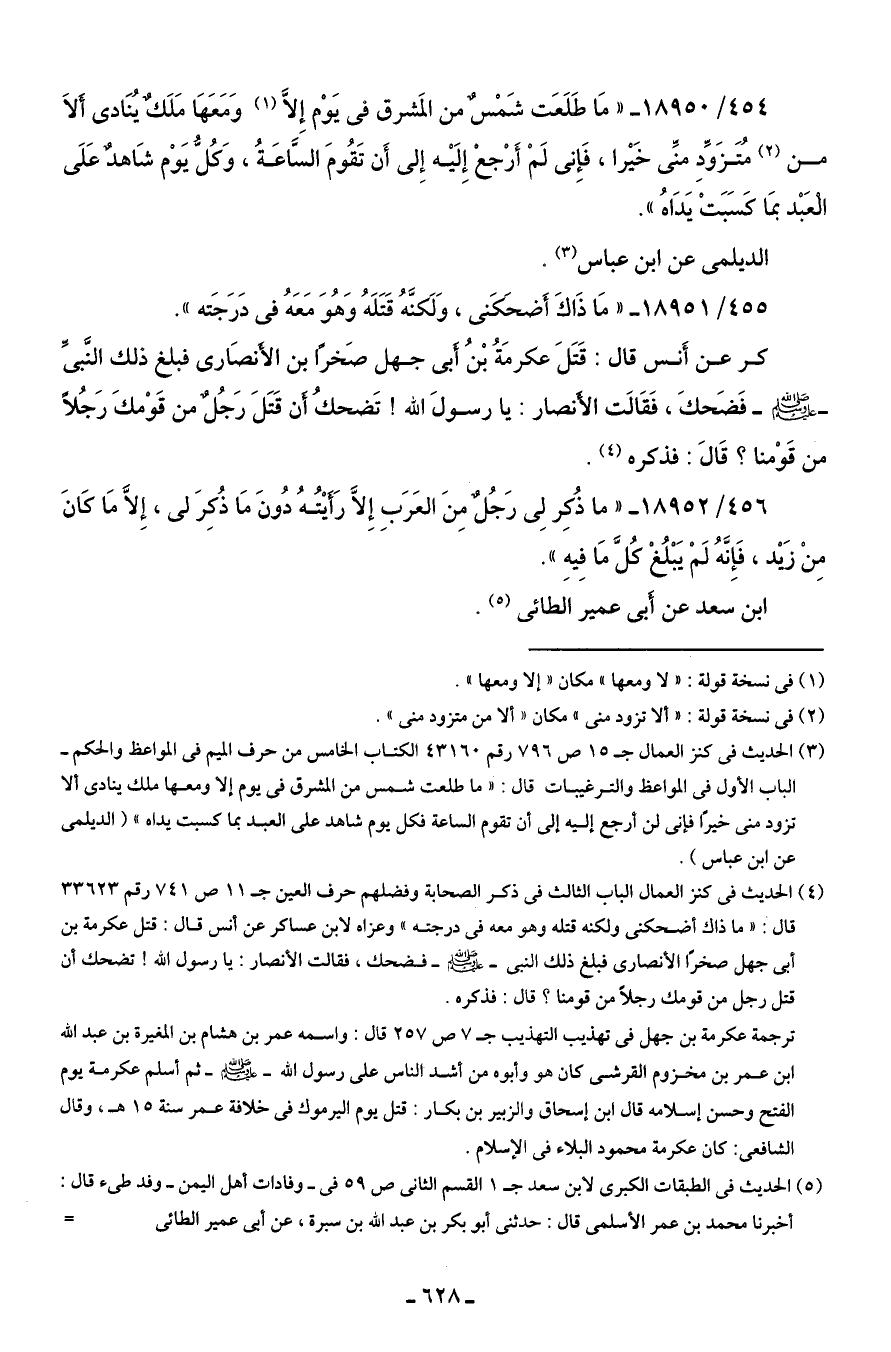 ٤٥٤/ ١٨٩٥٠ـ « مَا طَلَعَت شَمْسٌ من المَشرق فى يَوْم إِلاَّ (١) وَمَعَهَا مَلَكٌ يُنَادى أَلاَ
مـن (٢) مُتَـزَوِّد منِّى خَيْرا ، فَإِنى لَمْ أَرْجعْ إِلَيْـه إلى أَن تَقُومَ السَّاعَـةُ ، وَكُلُّ يَوْم شَاهدٌ عَلَى
الْعَبْد بمَا كَسَبَتْ يَدَاهُ ».
الديلمى عن ابن عباس(٣) .
٤٥٥/ ١٨٩٥١ـ « مَا ذَاكَ أَضحَكَنى ، وَلَكنَّهُ قَتَلَهُ وَهُوَ مَعَهُ فى دَرَجَته ».
كـر عـن أَنـس قال : قَتَلَ عكرمَةُ بْنُ أَبى جـهل صَخرًا بن الأَنصَارى فبلغ ذلك النَّبىِّ
ـ ﷺ ـ فَضَحكَ ، فَقَالَت الأنصار : يا رسـولَ الله ! تَضحكُ أَن قَتَلَ رَجُلٌ من قَوْمكَ رَجُلاً
من قَوْمنا ؟ قَالَ : فذكره (٤) .
٤٥٦/ ١٨٩٥٢ـ « ما ذُكِر لى رَجُلٌ مِنَ العَرَبِ إِلاَّ رَأَيْتُـهُ دُونَ مَا ذُكِرَ لى ، إِلاَّ مَا كَانَ
مِنْ زَيْد ، فَإِنَّهُ لَمْ يَبْلُغْ كُلَّ مَا فِيهِ ».
ابن سعد عن أَبى عمير الطائى (٥) .
(١) فى نسخة قولة : « لا ومعها » مكان « إلا ومعها » .
(٢) فى نسخة قولة : « ألا تزود منى » مكان « ألا من متزود منى » .
(٣) الحديث فى كنز العمال جـ ١٥ ص ٧٩٦ رقم ٤٣١٦٠ الكتـاب الخامس من حرف الميم فى المواعظ والحكم ـ
الباب الأول فى المواعظ والتـرغيبـات قال : « ما طلعت شـمس من المشرق فى يوم إلا ومعـها ملك ينادى ألا
تزود منى خيرًا فإنى لن أرجع إليه إلى أن تقوم الساعة فكل يوم شاهد على العبـد بما كسبت يداه » ( الديلمى
عن ابن عباس ) .
(٤) الحديث فى كنز العمال الباب الثالث فى ذكـر الصحابة وفضلهم حرف العين جـ ١١ ص ٧٤١ رقم ٣٣٦٢٣
قال : « ما ذاك أضـحكنى ولكنه قتله وهو معه فى درجتـه » وعزاه لابن عساكر عن أنس قـال : قتل عكرمة بن
أبى جهل صخرًا الأنصارى فبلغ ذلك النبى ـ ﷺ ـ فـضحك ، فقالت الأنصار : يا رسول الله ! تضحك أن
قتل رجل من قومك رجلاً من قومنا ؟ قال : فذكره .
ترجمة عكرمة بن جهل فى تهذيب التهذيب جـ ٧ ص ٢٥٧ قال : واسـمه عمر بن هشام بن المغيرة بن عبد الله
ابن عـمر بن مخـزوم القرشـى كان هو وأبوه من أشـد الناس على رسول الله ـ ﷺ ـ ثم أسلم عكرمـة يوم
الفتح وحسن إسـلامه قال ابن إسحاق والزبير بن بكـار : قتل يوم اليرموك فى خلافة عـمر سنة ١٥ هـ ، وقال
الشافعى: كان عكرمة محمود البلاء فى الإسلام .
(٥) الحديث فى الطبقات الكبرى لابن سعد جـ ١ القسم الثانى ص ٥٩ فى ـ وفادات أهل اليمن ـ وفد طىء قال :
أخبرنا محمد بن عمر الأسلمى قال : حدثنى أبو بكر بن عبد الله بن سبرة ، عن أبى عمير الطائى =
ـ ٦٢٨ ـ